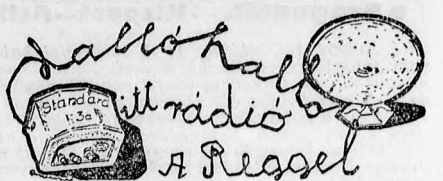 Halló halló
Standard
3a
itt rádió
A Reggel